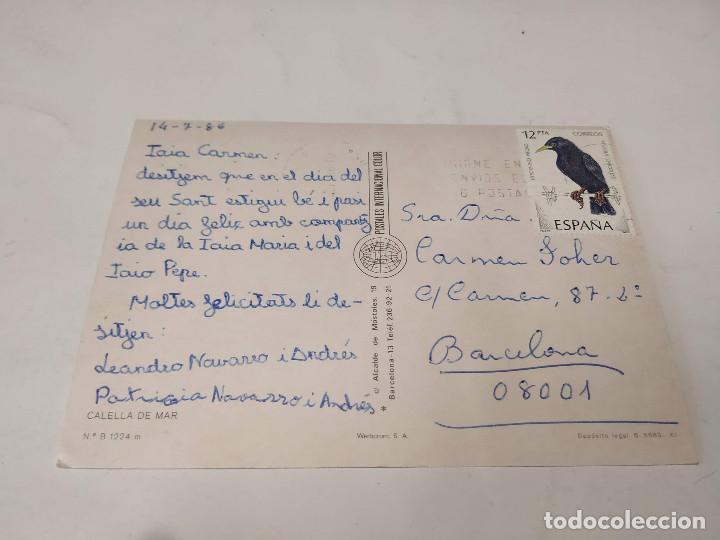 14-7-86
Iaia Carmen:
desitjem que en el dia del
seu Sant estigui bé i pasi
un dia feliç amb company-
ia de la Iaia Maria i del
Iaio Pepe.
Moltes felicitats li de-
sitjen:
Leandro Navarro i Andrés
Patricia Navarro i Andrés
CALELLA DE MAR
N.º B 1224 m
POSTALES INTERNACIONAL COLOR
c/ Alcalde de Móstoles, 18
Barcelona-13 Teléf. 236 92 21
Werbcrom, S. A.
12 PTA
CORREOS
ESTORNINO NEGRO
ESPAÑA
ENVIOS
POSTAL
Sra. Dña.
Carmen Soher
c/ Carmen, 87-2º
Barcelona
08001
Depósito legal B.
todocoleccion.net